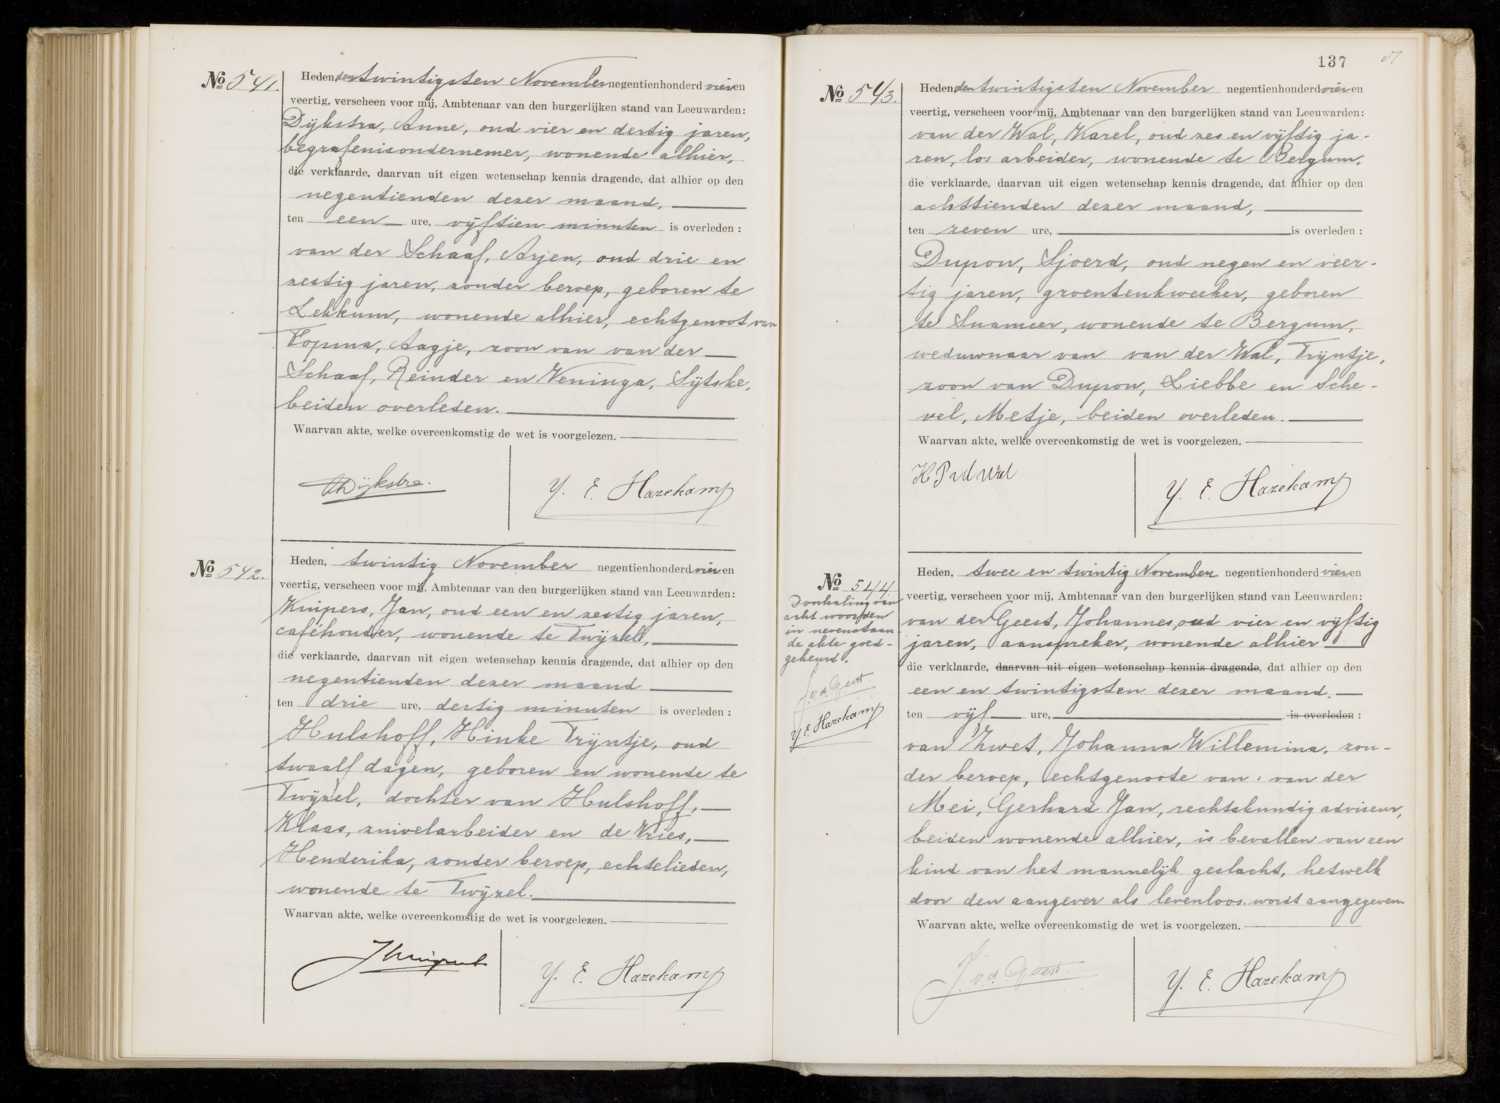 No 541.
Heden den twintigsten November negentienhonderd vier en
veertig, verscheen voor mij, Ambtenaar van den burgerlijken stand van Leeuwarden:
Dijkstra, Anne, oud vier en dertig jaren,
begrafenisondernemer, wonende alhier,
die verklaarde, daarvan uit eigen wetenschap kennis dragende, dat alhier op den
negentienden dezer maand,
ten een ure, vijftien minuten is overleden:
van der Schaaf, Arjen, oud drie en
zestig jaren, zonder beroep, geboren te
Lekkum, wonende alhier, echtgenoot van
Topma, Aagje, zoon van van der
Schaaf, Reinder en Weninga, Sijtske,
beiden overleden.
Waarvan akte, welke overeenkomstig de wet is voorgelezen.
Dijkstra.
Y. E. Hazekamp
No 542.
Heden, twintig November negentienhonderd vier en
veertig, verscheen voor mij, Ambtenaar van den burgerlijken stand van Leeuwarden:
Kuipers, Jan, oud een en zestig jaren,
caféhouder, wonende te Twijzel,
die verklaarde, daarvan uit eigen wetenschap kennis dragende, dat alhier op den
negentienden dezer maand
ten drie ure, dertig minuten is overleden:
Hulshoff, Hinke Trijntje, oud
twaalf dagen, geboren en wonende te
Twijzel, dochter van Hulshoff,
Klaas, zuivelarbeider en de Vries,
Henderika, zonder beroep, echtelieden,
wonende te Twijzel.
Waarvan akte, welke overeenkomstig de wet is voorgelezen.
JKuipers
Y. E. Hazekamp
137
No 543.
Heden den twintigsten November negentienhonderd vier en
veertig, verscheen voor mij, Ambtenaar van den burgerlijken stand van Leeuwarden:
van der Wal, Karel, oud zes en vijftig ja-
ren, los arbeider, wonende te Bergum,
die verklaarde, daarvan uit eigen wetenschap kennis dragende, dat alhier op den
achttienden dezer maand,
ten zeven ure, is overleden:
Dupon, Sjoerd, oud negen en veer-
tig jaren, groentenkweeker, geboren
te Suameer, wonende te Bergum,
weduwnaar van van der Wal, Trijntje,
zoon van Dupon, Liebbe en Sche-
vel, Metje, beiden overleden.
Waarvan akte, welke overeenkomstig de wet is voorgelezen.
K
Y. E. Hazekamp
No 544
Heden, twee en twintig November negentienhonderd vier en
veertig, verscheen voor mij, Ambtenaar van den burgerlijken stand van Leeuwarden:
van der Geest, Johannes, oud vier en vijftig
jaren, aanspreker, wonende alhier
die verklaarde, daarvan uit eigen wetenschap kennis dragende, dat alhier op den
een en twintigsten dezer maand.
ten vijf ure, is overleden:
van Zwet, Johanna Willemina, zon-
der beroep, echtgenoote van van der
Mei, Gerhard Jan, rechtskundig adviseur,
beiden wonende alhier, is bevallen van een
kind van het mannelijk geslacht, hetwelk
door den aangever als levenloos wordt aangegeven
Waarvan akte, welke overeenkomstig de wet is voorgelezen.
Doorhaling van
acht woorden
in nevenstaan-
de akte goed-
gekeurd.
J. v. d. Geest
Y. E. Hazekamp
J. v. d. Geest
Y. E. Hazekamp